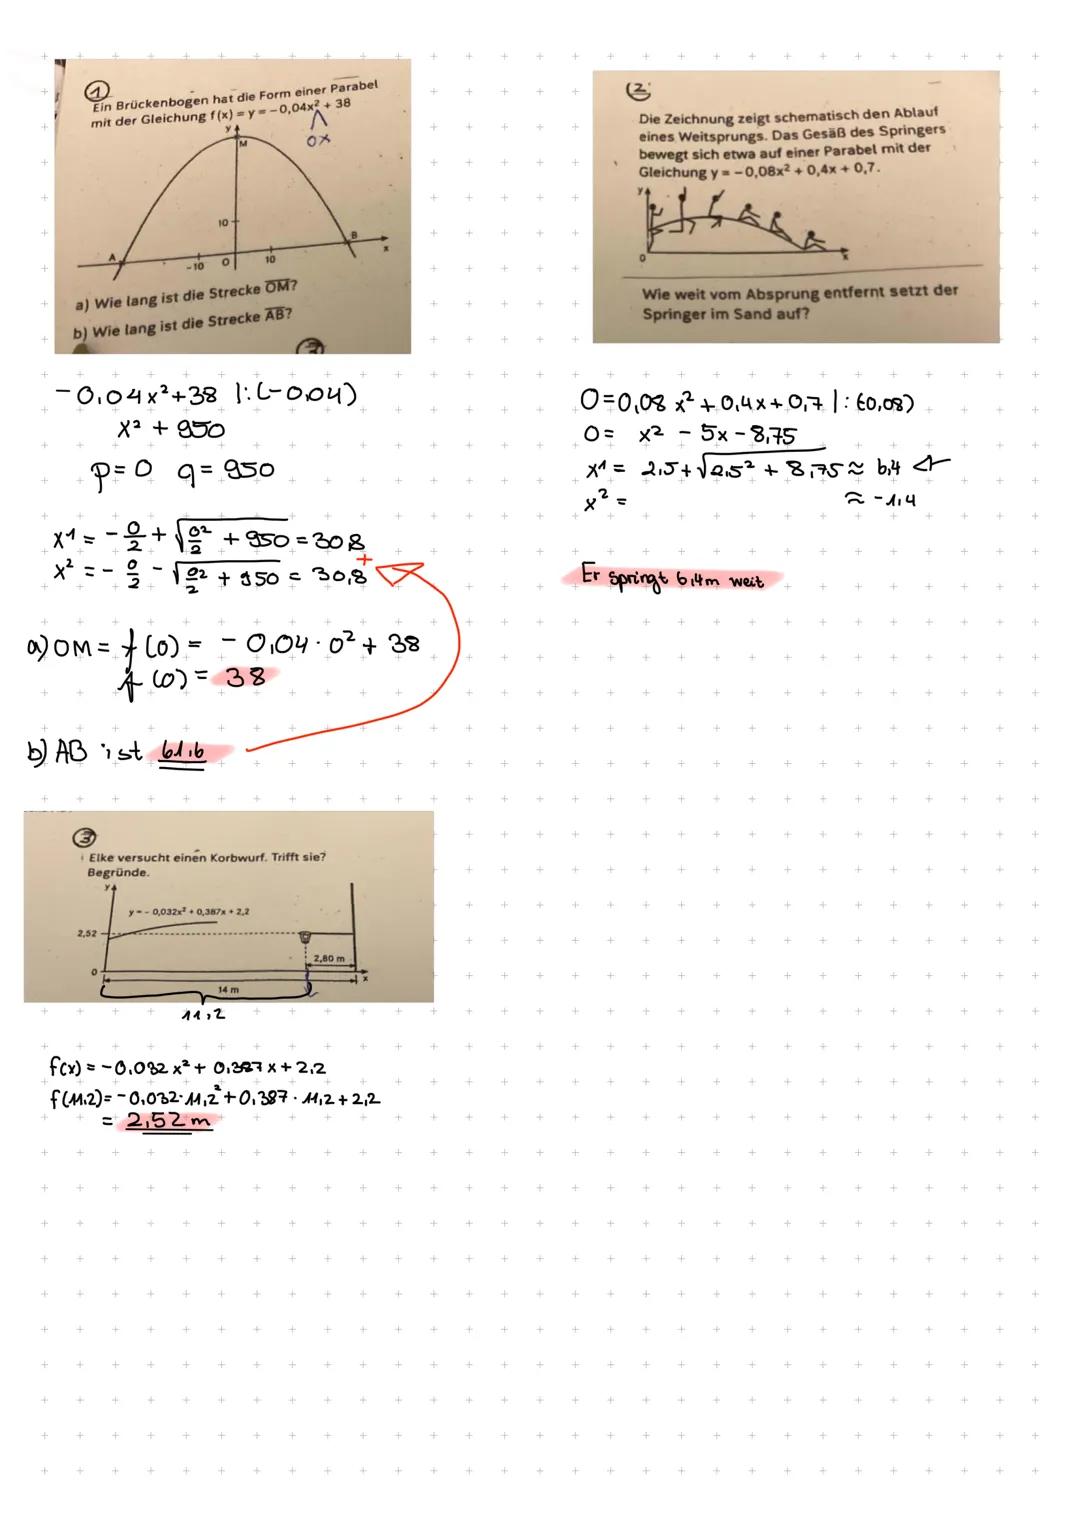 1
Ein Brückenbogen hat die Form einer Parabel
mit der Gleichung f(x) = y = -0,04x² + 38
0x
y
M
10
A
B
x
-10
0
10
a) Wie lang ist die Strecke OM?
b) Wie lang ist die Strecke AB?
-0,04x²+38 |:(-0,04)
x² + 950
p=0 q=950
x1 = -0/2 + √(0²/2 + 950) = 30,8
x² = -0/2 - √(0²/2 + 950) = 30,8
+
a) OM = f(0) = -0,04·0² + 38
f(0) = 38
b) AB ist 61,6
2
Die Zeichnung zeigt schematisch den Ablauf
eines Weitsprungs. Das Gesäß des Springers
bewegt sich etwa auf einer Parabel mit der
Gleichung y = -0,08x² + 0,4x + 0,7.
y
0
x
Wie weit vom Absprung entfernt setzt der
Springer im Sand auf?
0=0,08 x² + 0,4x + 0,7 |: (-0,08)
0= x² - 5x - 8,75
x1 = 2,5+√2,5² + 8,75 ≈ 6,4
x² = ≈ -1,4
Er springt 6,4m weit
3
Elke versucht einen Korbwurf. Trifft sie?
Begründe.
y
y = -0,032x² + 0,387x + 2,2
2,52
2,80 m
0
x
14 m
11,2
f(x) = -0,032 x² + 0,387 x + 2,2
f(11,2) = -0,032·11,2² + 0,387 · 11,2 + 2,2
= 2,52 m